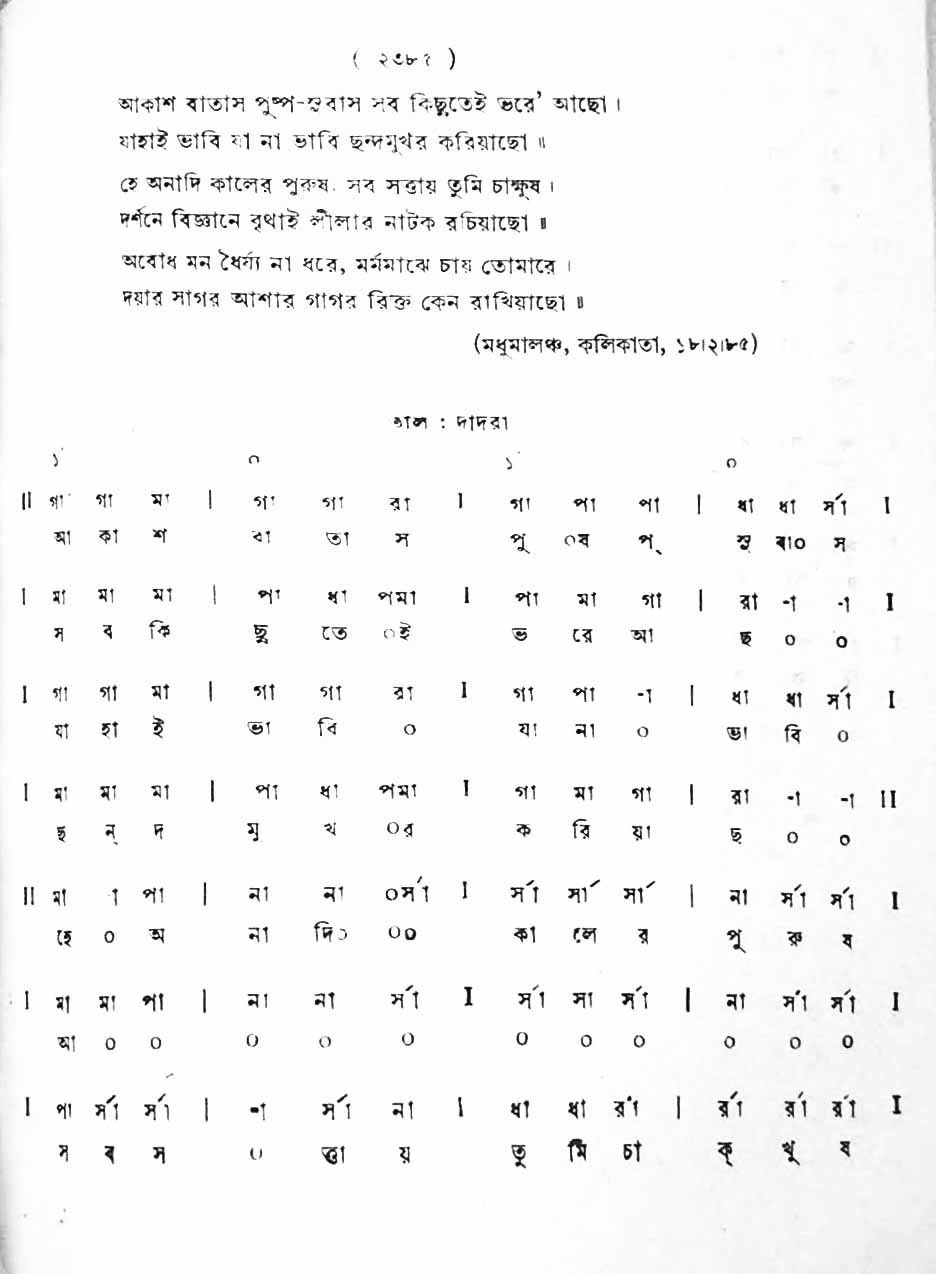 ( ২৩৮৭ )
আকাশ বাতাস পুষ্প-সুবাস সব কিছুতেই ভরে' আছো ।
যাহাই ভাবি যা না ভাবি ছন্দমুখর করিয়াছো ॥
হে অনাদি কালের পুরুষ. সব সত্তায় তুমি চাক্ষুষ ।
দর্শনে বিজ্ঞানে বৃথাই লীলার নাটক রচিয়াছো ॥
অবোধ মন ধৈর্য্য না ধরে, মর্মমাঝে চায় তোমারে ।
দয়ার সাগর আশার গাগর রিক্ত কেন রাখিয়াছো ॥
(মধুমালঞ্চ, কলিকাতা, ১৮।২।৮৫)
তাল : দাদরা
১´ ০ ১´ ০
II গা গা মা | গা গা রা I গা পা পা | ধা ধা র্সা I
আ কা শ বা তা স পু ০ষ প্ সু বা০ স
I মা মা মা | পা ধা পমা I পা মা গা | রা -া -া I
স ব কি ছু তে ০ই ভ রে আ ছ ০ ০
I গা গা মা | গা গা রা I গা পা -া | ধা ধা র্সা I
যা হা ই ভা বি ০ যা না ০ ভা বি ০
I মা মা মা | পা ধা পমা I গা মা গা | রা -া -া II
ছ ন্ দ মু খ ০র ক রি য়া ছ ০ ০
II মা া পা | না না ০র্সা I র্সা র্সা র্সা | না র্সা র্সা I
হে ০ অ না দি০ ০০ কা লে র পু রু ষ
I মা মা পা | না না র্সা I র্সা সা র্সা | না র্সা র্সা I
আ ০ ০ ০ ০ ০ ০ ০ ০ ০ ০ ০
I পা র্সা র্সা | -া র্সা না I ধা ধা র্রা | র্রা র্রা র্রা I
স ব স ০ ত্তা য় তু মি চা ক্ খু ষ